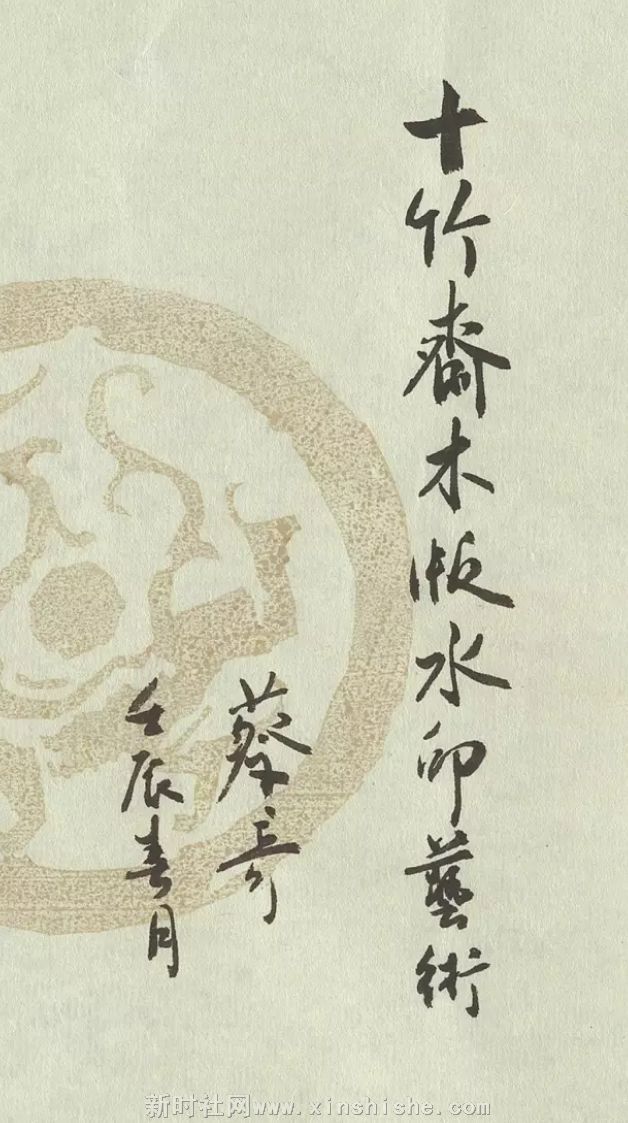 十竹齋木版水印藝術
蔡奇
壬辰春月
新时社网www.xinshishe.com